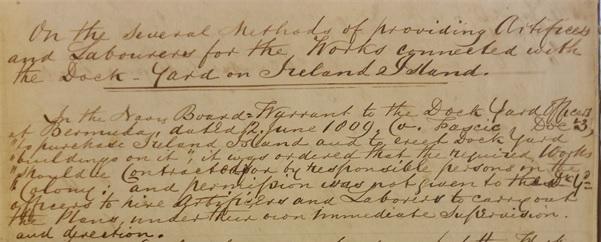 On the Several Methods of providing Artificers
and Labourers for the Works connected with
the Dock-Yard on Ireland Island.
In the Navy Board Warrant to the Dock Yard Officers
at Bermuda, dated 2. June 1809, (v. Fascic Doc 3,
"to purchase Ireland Island and to erect Dock Yard
"buildings on it", it was ordered that the required Works
"should be Contracted for by responsible persons in the
"Colony"; and permission was not given to the Dk Yd
officers to hire Artificers and Laborers to carry out
the Plans, under their own immediate Supervision.
and direction.